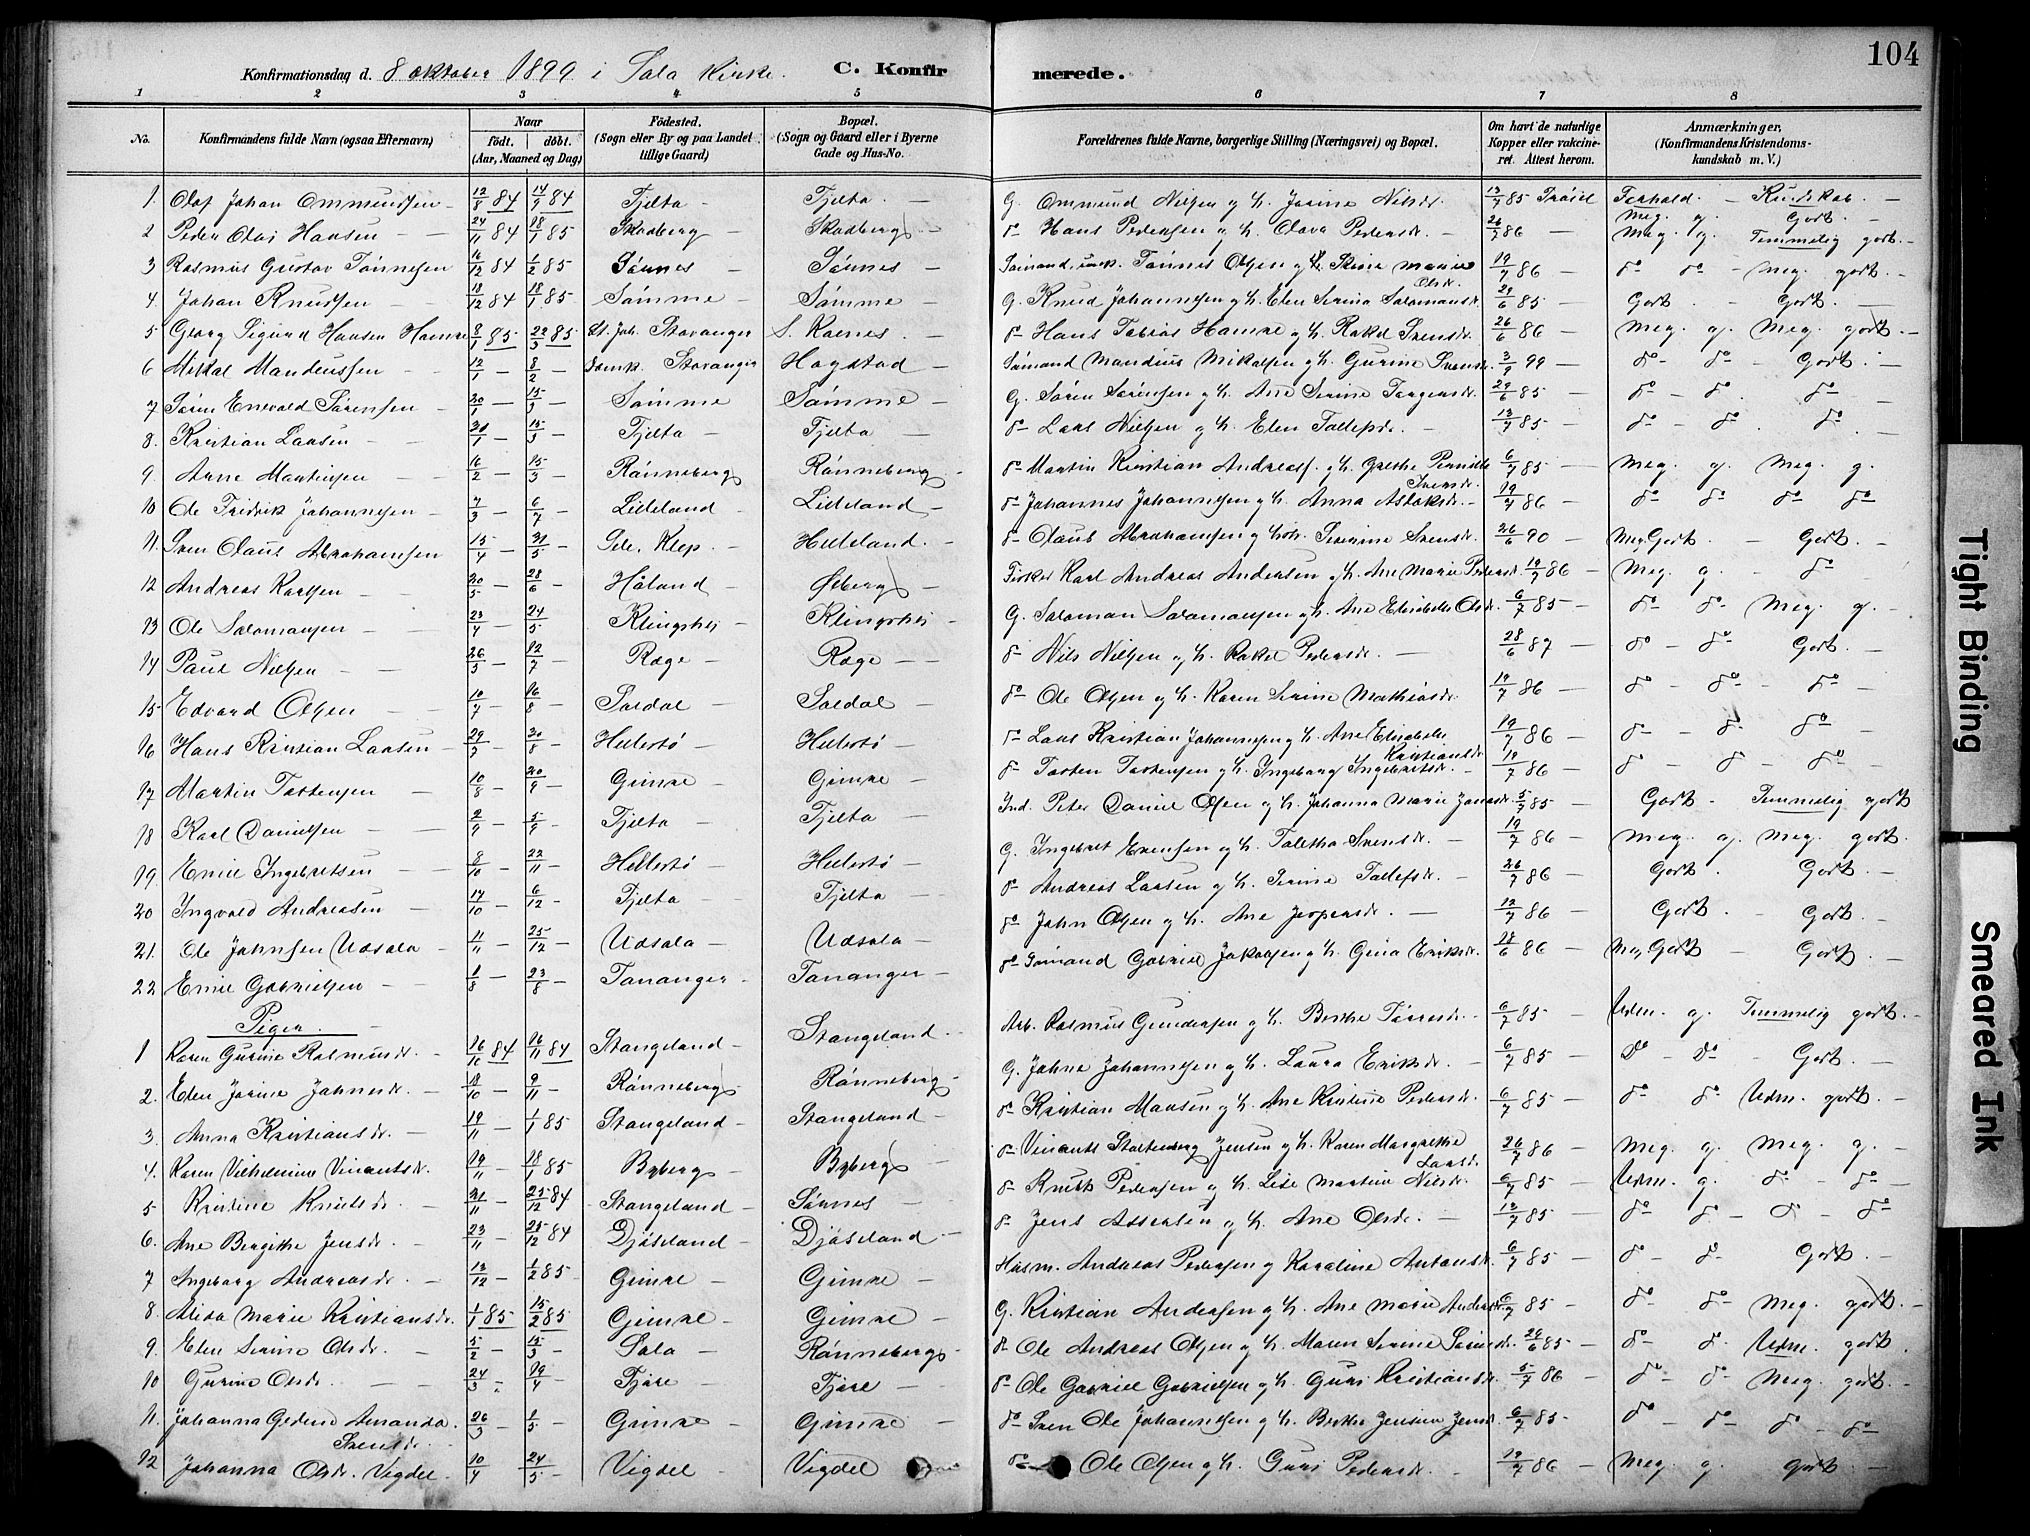 104
Konfirmationsdag d. 8 oktober 1899 i Sola Kirke. C. Konfirmerede.
1 2 3 4 5 6 7 8
No. Konfirmandens fulde Navn (ogsaa Efternavn) Naar født. døbt. (Aar, Maaned og Dag) Fødested. (Sogn eller By og paa Landet tillige Gaard) Bopæl. (Sogn og Gaard eller i Byerne Gade og Hus-No. Forældrenes fulde Navne, borgerlige Stilling (Næringsvei) og Bopæl. Om havt de naturlige Kopper eller vakcineret. Attest herom. Anmærkninger, (Konfirmandens Kristendomskundskab m. V.)
1. Olaf Johan Ommundsen 12/8 84 14/9 84 Tjelta Tjelta G. Ommund Nielsen og H. Jorine Nilsdr. 13/7 85 Forhold Kundskab
2 Peder Olai Hansen 24/11 84 18/1 85 Skadberg Skadberg do Hans Pedersen og H. Olava Pedersdr. 26/7 86 Meg. g. Godt Meg. g. Temmelig godt.
3 Rasmus Gustav Tønnesen 16/12 84 1/2 85 Sønnes Sønnes Sømand Tønnes Olsen og H. Stine Marie Olsdr. 19/7 86 do do Meg. godt.
4. Johan Knudsen 18/12 84 18/1 85 Sømme Sømme G. Knud Johannesen og H. Elen Serina Salamonsdr. 29/6 85 Godt Godt.
5 Georg Sigurd Hansen Hamre 8/1 85 22/3 85 St. Joh. Stavanger S. Kolnes do Hans Tobias Hamre og H. Rakel Svensdr. 26/6 86 Meg. g. Meg. godt
6 Mikal Mandeussen 12/1 8/2 Domk. Stavanger Hogstad Sømand Mandius Mikalsen og H. Gurine Svensdr. 3/9 99 do do Godt.
7 Søren Enevald Sørensen 20/1 15/3 Sømme Sømme G. Søren Sørensen og H. Ane Serine Torgersdr. 29/6 85 do do do
8. Kristian Larsen 30/1 15/3 Tjelta Tjelta do Lars Nielsen og H. Elen Tollefsdr. 13/7 85 do do do
9. Arne Martinsen 16/2 15/3 Rønneberg Rønneberg do Martin Kristian Andreas. og H. Grethe Pernille Svensdr. 6/7 85 Meg. g. Meg. g.
10 Ole Fredrik Johannesen 7/3 6/7 Lilleland Lilleland do Johannes Johannesen og H. Anna Aslaksdr. 19/7 86 do do do do
11. Sven Olaus Abrahamsen 15/4 31/5 Gele, Klep. Helleland. do Olaus Abrahamsen og Serine Svensdr. 26/6 90 Meg Godt Godt.
12 Andreas Karlsen 20/5 28/6 Håland Østberg Fisker Karl Andreas Andersen og H. Ane Marie Pedersdr. 19/7 86 Meg. g. do
13 Ole Salamonsen 23/4 24/5 Klingshei Klingshei G. Salomon Salamonsen og H. Ane Elisabeth Olsdr. 6/7 85 do do Meg. g.
14 Paul Nielsen 26/5 12/7 Ræge Ræge do Nils Nielsen og H. Rakel Pedersdr. 28/6 87 do do Godt.
15 Edvard Olsen 10/7 16/8 Soldal Soldal do Ole Olsen og H. Karen Serine Mathiasdr. 19/7 86 do do do
16 Hans Kristian Larsen 29/7 30/8 Hellestø Hellestø do Lars Kristian Johannesen og H. Ane Elisabeth Kristiansdr. 19/7 86 do do do
17 Martin Tostensen 10/8 20/9 Gimre Gimre do Tosten Tostensen og H. Ingeborg Ingebretsdr. 19/7 86 do do do
18 Karl Danielsen 2/9 5/9 Tjelta Tjelta Ind. Peter Daniel Olsen og H. Johanna Marie Jonasdr. 5/7 85 Godt Temmelig godt
19. Emil Ingebretsen 8/10 22/11 Hellestø Hellestø G. Ingebret Evensen og H. Taletha Svensdr. 19/7 86 Meg. g. Meg. godt.
20 Ingvald Andreasen 17/10 6/12 Tjelta Tjelta do Andreas Larsen og H. Serine Tollefsdr. 26/7 86 Godt. Godt.
21. Ole Johnsen Udsola 11/11 25/12 Udsola Udsola do John Olsen og H. Ane Jespersdr. 12/7 86 Godt Godt.
22 Emil Gabrielsen 1/8 23/8 Tananger Tananger do Sømand Gabriel Jakobsen og H. Gina Eriksdr. 28/6 86 Meg Godt Godt.
Piger.
1 Karen Gurine Rasmusdr. 16/10 84 16/11 84 Stangeland Stangeland Arb. Rasmus Gundersen og H. Berthe Torresdr. 6/7 85 Udm. g. Temmelig godt.
2. Elen Jorine Johnesdr. 18/10 9/11 Rønneberg Rønneberg G. Johne Johannesen og H. Laura Eriksdr. 6/7 85 Do Do Godt.
3. Anna Kristiansdr. 19/11 1/1 85 Stangeland Stangeland do Kristian Monsen og H. Ane Kristine Pedersdr. 6/7 85 do do Udm. godt.
4. Karen Vilhelmine Vincentsdr. 19/11 18/1 85 Byberg Byberg do Vincents Stoltenberg Jensen og H. Karen Margrethe Larsdr. 26/7 86 Meg. g. Meg. g.
5 Kristine Knutsdr. 21/11 25/12 84 Stangeland Sønnes do Knut Pedersen og H. Lise Martine Nilsdr. 6/7 85 Udm. g. do do
6. Ane Bergithe Jensdr. 23/11 25/12 84 Djøseland Djøseland do Jens Assersen og H. Ane Olsdr. 13/7 85 do do do do
7 Ingeborg Andreasdr. 13/12 1/2 85 Gimre Gimre Husm. Andreas Pedersen og Karoline Antonsdr. 6/7 85 do do Godt.
8. Alida Marie Kristiansdr. 1/1 85 15/2 85 Gimre Gimre G. Kristian Andersen og H. Ane Marie Andersdr. 6/7 85 do do Meg. godt.
9. Elen Serine Olsdr. 5/2 15/3 Sola Rønneberg do Ole Andreas Olsen og H. Maren Serine Sørensdr. 29/6 85 do do Udm. godt.
10 Gurine Olsdr. 24/3 19/4 Tjøre Tjøre do Ole Gabriel Gabrielsen og H. Guri Kristiansdr. 5/7 86 do do Meg. godt.
11. Johanna Gedine Amanda Svensdr. 26/3 1/5 Gimre Gimre do Sven Ole Johannesen og H. Berthe Jensine Jensdr. 6/7 85 do do do do
12 Johanna Olsdr. Vigdel 10/4 24/5 Vigdel Vigdel do Ole Olsen og H. Guri Pedersdr. 19/7 86 Meg. g. godt
Tight Binding
Smeared Ink